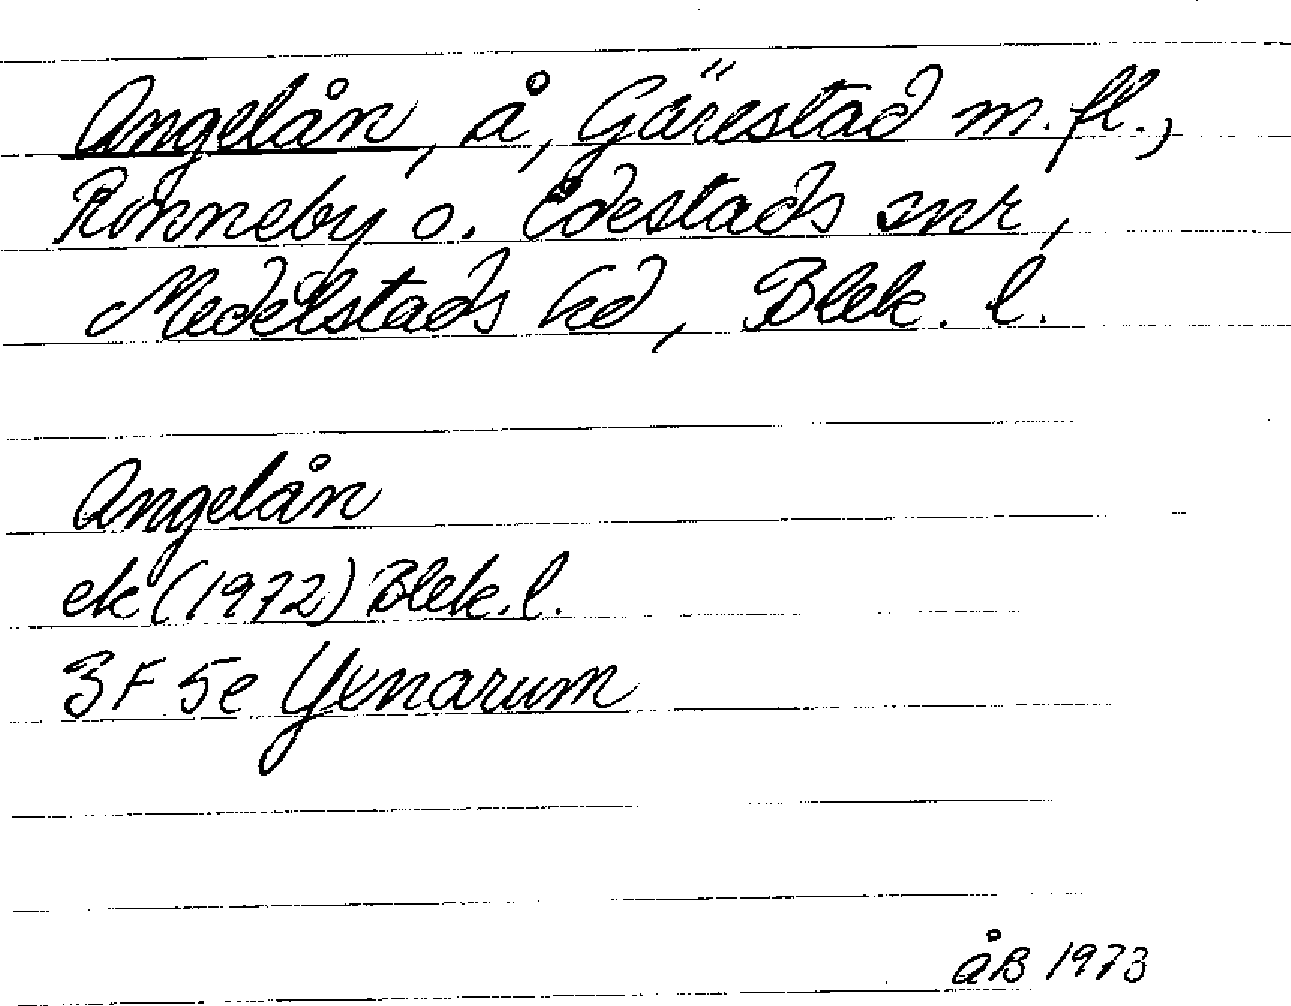 Angelån, å, Gärestad m.fl.,
Ronneby o. Edestads snr,
Medelstads hd, Blek. l.
Angelån
ek (1972) Blek. l.
3F 5e Yxnarum
åB 1973